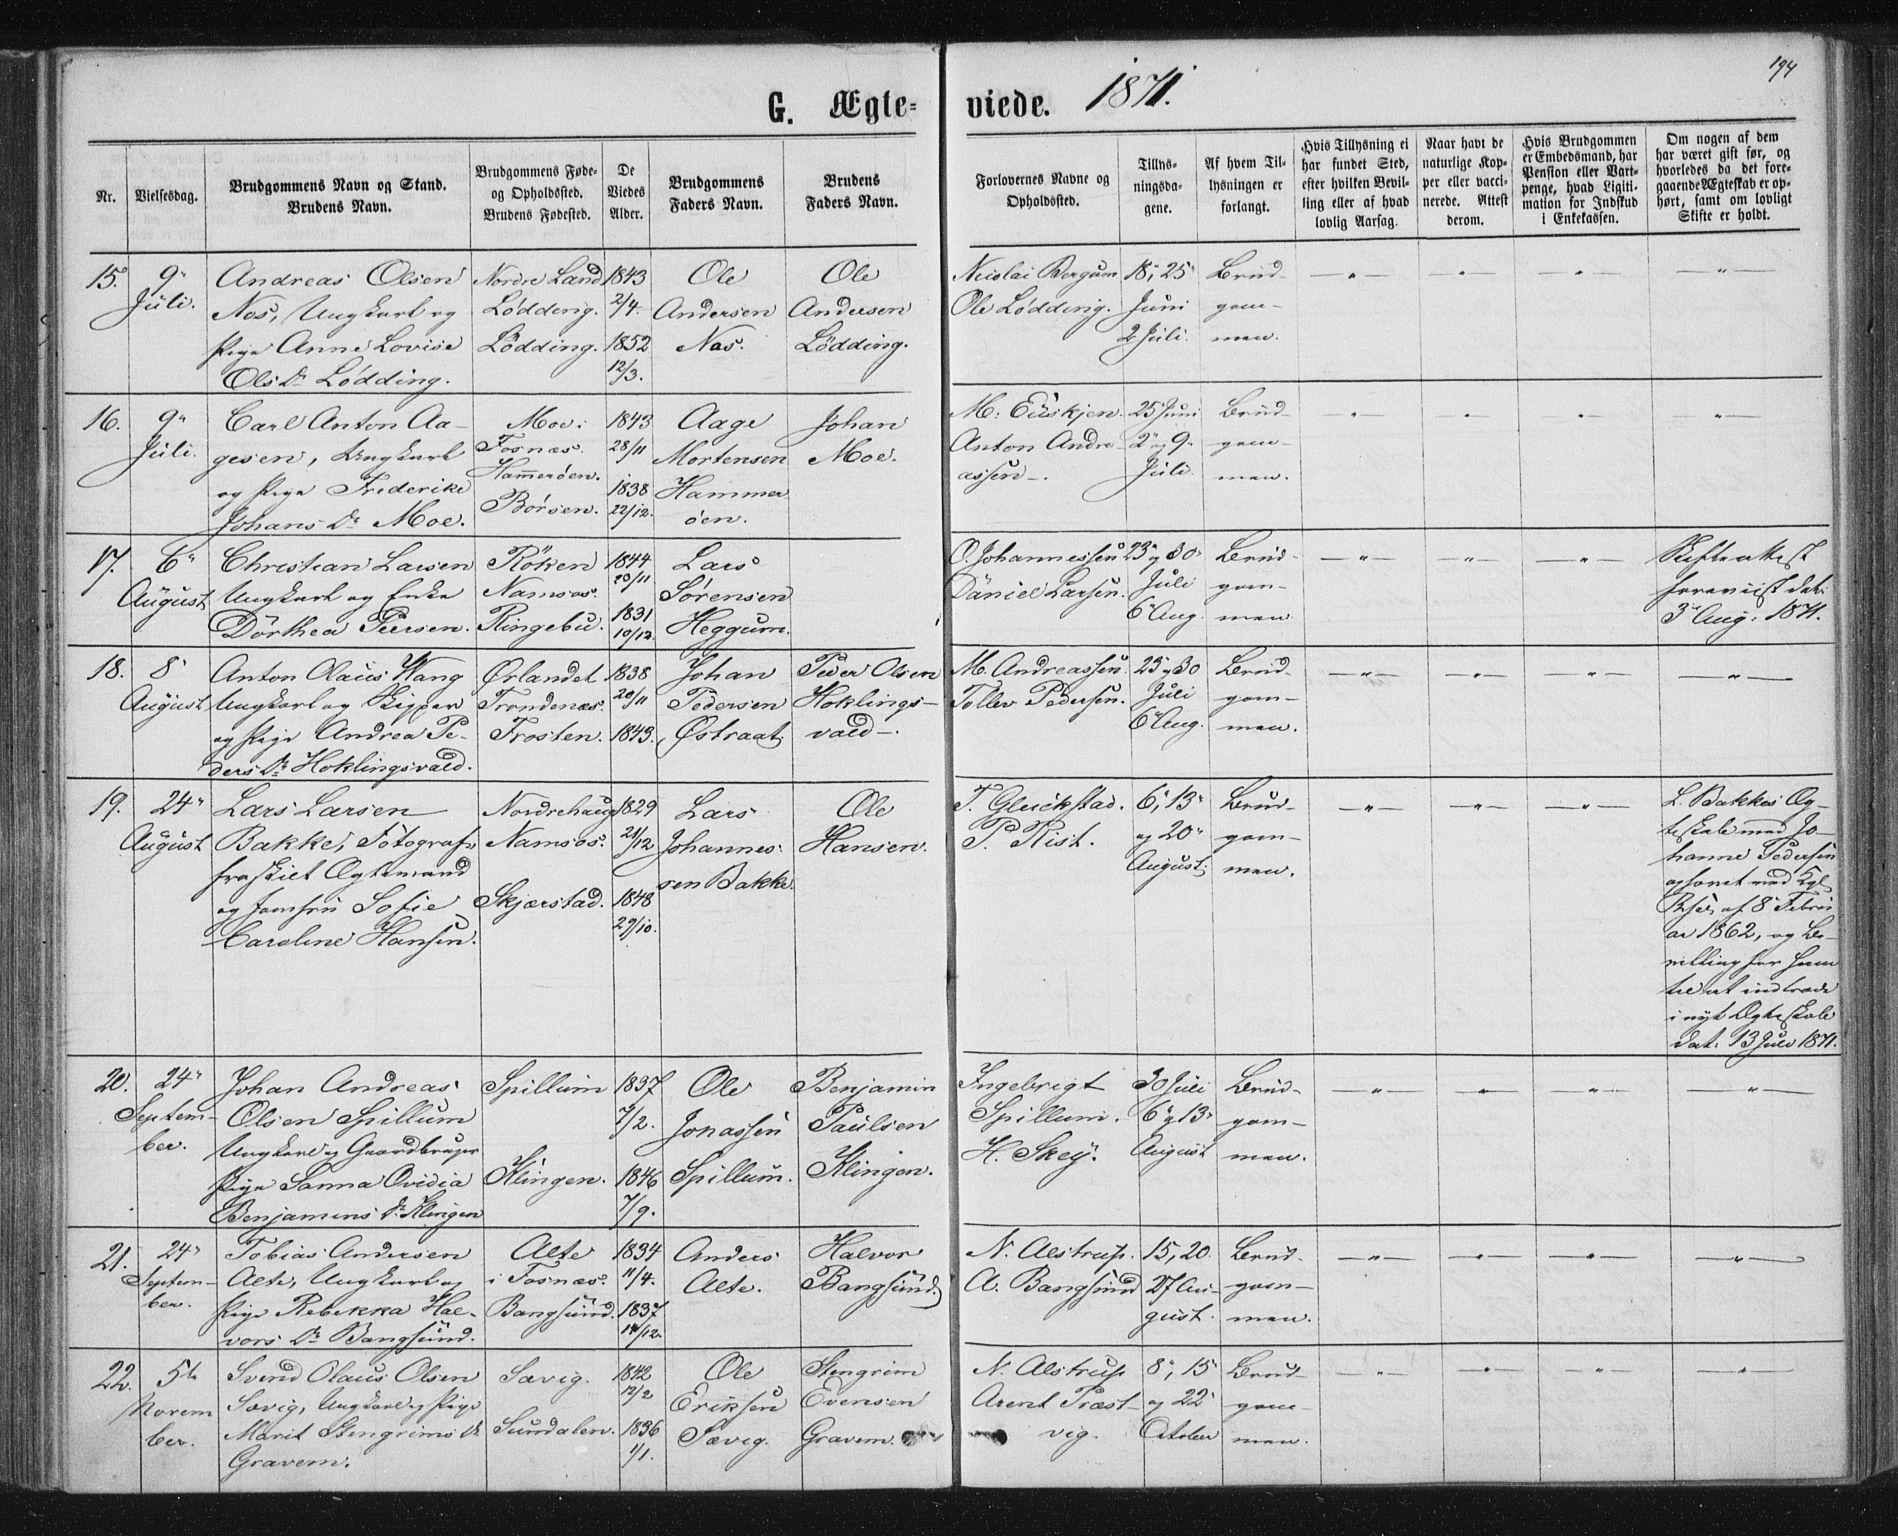 194
G. Ægte= viede. 1871.
Nr.
Vielsesdag.
Brudgommens Navn og Stand.
Brudens Navn.
Brudgommens Føde-
og Opholdssted.
Brudens Fødested.
De
Viedes
Alder.
Brudgommens
Faders Navn.
Brudens
Faders Navn.
Forlovernes Navne og
Opholdssted.
Tillys-
ningsda-
gene.
Af hvem Til-
lysningen er
forlangt.
Hvis Tillysning ei
har fundet Sted,
efter hvilken Bevil-
ling eller af hvad
lovlig Aarsag.
Naar havt de
naturlige Kop-
per eller vacci-
nerede. Attest
derom.
Hvis Brudgommen
er Embedsmand, har
Pension eller Vart-
penge, hvad Ligiti-
mation for Indskud
i Enkekassen.
Om nogen af dem
har været gift før, og
hvorledes da det fore-
gaaende Ægteskab er op-
hørt, samt om lovligt
Skifte er holdt.
15.
9"
Juli.
Andreas Olsen
Nos, Ungkarl og
Pige Anne Lovise
Ols Dr Lødding.
Nordre Land
Lødding.
Lødding.
1843
2/4.
1852
12/3.
Ole
Andersen
Nos.
Ole
Andersen
Lødding.
Nicolai Bergum
Ole Lødding.
18", 25"
Juni
2 Juli.
Brud-
gom-
men.
16.
9"
Juli.
Carl Anton Aa-
gesen, Ungkarl
og Pige Frederike
Johans Dr Moe.
Moe i
Fosnæs.
Hammerøen.
Børsen.
1843
28/11
1838
22/12.
Aage
Mortensen
Hammer
øen.
Johan
Moe.
M. Euskjen.
Anton Andre-
assen.
25 Juni
2" og 9"
Juli.
Brud-
gom-
men.
17.
6"
August
Christian Larsen
Ungkarl og Enke
Dorthea Peersen.
Röken
Namsos.
Ringebu.
1844
20/11
1831
10/12.
Lars
Sørensen
Heggum.
O. Johannessen
Daniel Larsen.
23" og 30"
Juli
6" Aug.
Brud-
gom-
men
Skifteattest
forevist dat.
3" Aug. 1871.
18.
8"
August
Anton Olaus Wang
Ungkarl og Skipper
og Pige Andrea Pe-
ders Dr Hoklingsvald.
Ørlandet
Trondenæs.
Frosten.
1838
20/11
1843.
Johan
Pedersen
Østraat.
Peder Olsen
Hoklings-
vald.
M. Andreassen.
Tollev Pedersen.
23" og 30
Juli
6" Aug.
Brud-
gom-
men.
19.
24"
August
Lars Larsen
Bakke, Fotograf,
fraskilt Ægtemand
og Jomfru Sofie
Caroline Hansen.
Nordrehaug
Namsos.
Skjærstad.
1829
21/12
1848
29/10.
Lars
Johannes-
sen Bakke.
Ole
Hansen.
T. Gluckstad.
P. Kist.
6", 13"
og 20"
August.
Brud-
gom-
men.
L. Bakkes Æg-
teskab med Jo-
hanne Pedersen
ophævet ved Kgl.
Resol. af 8" Febru-
ar 1862, og Be-
villing for ham
til at indtræde
i nyt Ægteskab
dat. 13 Juli 1871.
20.
24"
Septem-
ber.
Johan Andreas
Olsen Spillum
Ungkarl og Gaardbruger
Pige Sanna Ovidia
Benjamins Dr Klingen
Spillum
Klingen.
1837
7/2.
1846
7/9.
Ole
Jonassen
Spillum.
Benjamin
Paulsen
Klingen.
Ingebrigt
Spillum.
H. Skey.
30 Juli
6" og 13"
August
Brud-
gom-
men.
21.
24"
Septem-
ber.
Tobias Andersen
Alte, Ungkarl og
Pige Rebekka Hal-
vors Dr Bangsund.
Alte
i Fosnæs.
Bangsund.
1834
11/4.
1837
14/12.
Anders
Alte.
Halvor
Bangsund.
N. Alstrup.
A. Bangsund
15, 20.
27 Au-
gust.
Brud-
gom-
men.
22.
5te
Novem
ber.
Svend Olaus Olsen
Sævig, Ungkarl og Pige
Marit Stengrims Dr
Gravem.
Sævig.
Sundalen.
1842
12/2
1836
1/1.
Ole
Eriksen
Sævig.
Stengrim
Evensen
Gravem.
N. Alstrup
Arent Præst-
vig.
8", 15"
og 22"
October
Brud-
gom-
men.